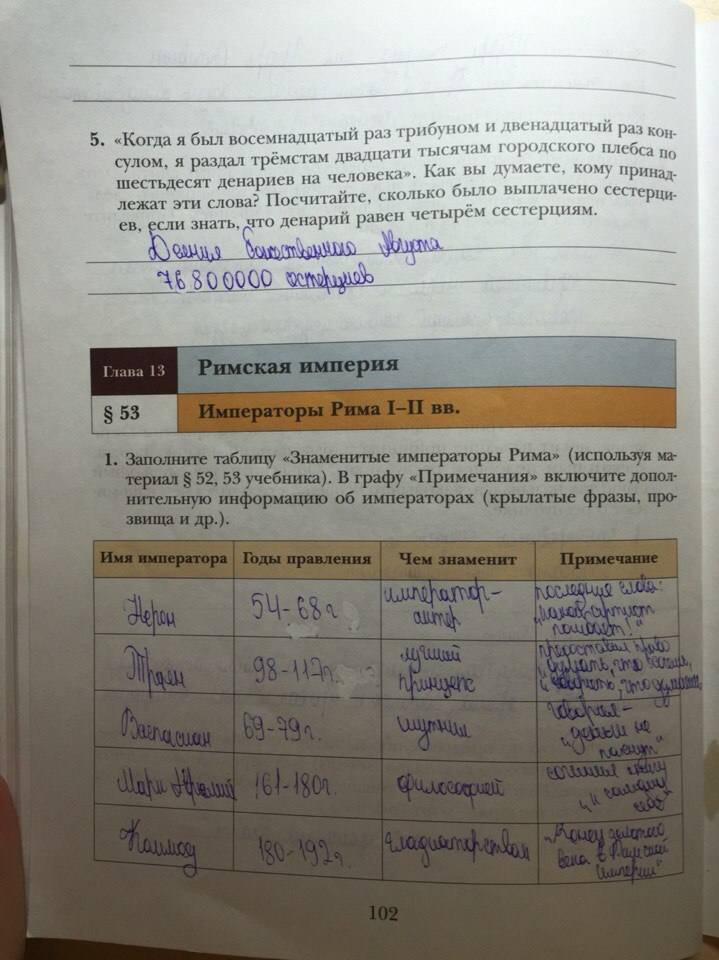 5. «Когда я был восемнадцатый раз трибуном и двенадцатый раз кон-
сулом, я раздал трёмстам двадцати тысячам городского плебса по
шестьдесят денариев на человека». Как вы думаете, кому принад-
лежат эти слова? Посчитайте, сколько было выплачено сестерци-
ев, если знать, что денарий равен четырём сестерциям.
Деяния божественного Августа
76800000 сестерциев
Глава 13
Римская империя
§ 53
Императоры Рима I–II вв.
1. Заполните таблицу «Знаменитые императоры Рима» (используя ма-
териал § 52, 53 учебника). В графу «Примечания» включите допол-
нительную информацию об императорах (крылатые фразы, про-
звища и др.).
Имя императора Годы правления Чем знаменит Примечание
Нерон 54-68 г. император-
актер
последние слова:
"какой артист
погибает!"
Траян 98-117 г. лучший
принцепс
предоставил право
"думать, что хочешь,
и говорить, что думаешь"
Васпасиан 69-79 г. шутник
говорил -
"деньги не
пахнут"
Марк Аврелий 161-180 г. философией
сочинил книгу
"К самому
себе"
Коммод 180-192 г. гладиаторством
"Конец золотого
века в Римской
империи"
102